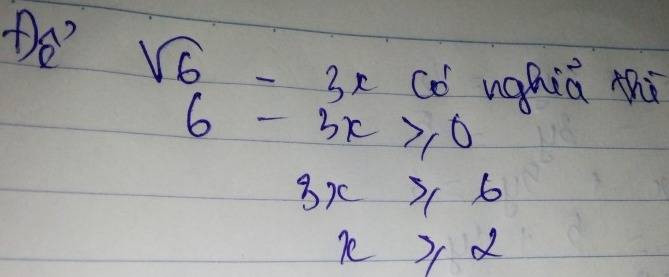 Để √6 - 3x có nghĩa thì
6 - 3x ≥ 0
3x ≥ 6
x ≥ 2